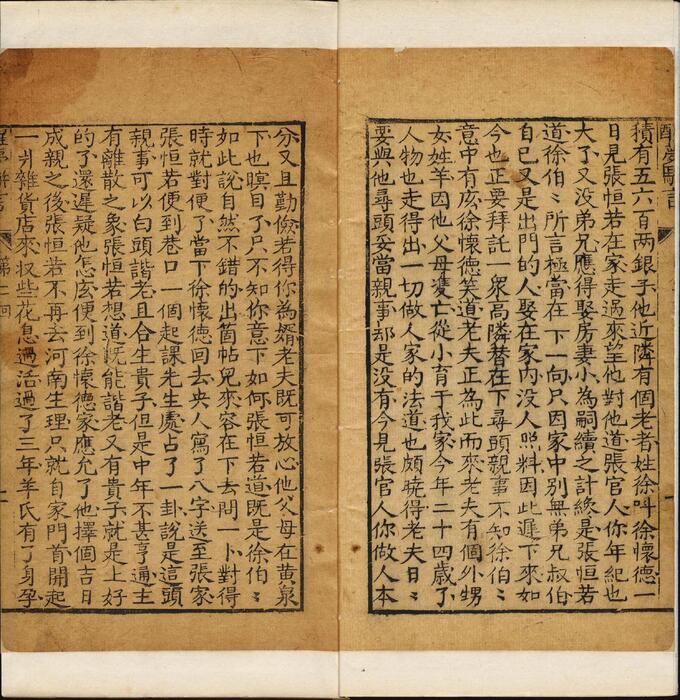 醒夢駢言
積有五六百両銀子他近隣有個老者姓徐叫徐懷德一
日見張恒若在家走過來望他對他道張官人你年紀也
大了又没弟兄應得娶房妻小為嗣續之計纔是張恒若
道徐伯〻所言極當在下一向只因家中別無弟兄叔伯
自已又是出門的人娶在家内没人照料因此遲下來如
今也正要拜託一衆高隣替在下尋頭親事不知徐伯〻
意中有庅徐懷德笑道老夫正為此而來老夫有個外甥
女姓羊因他父母䨇亡從小育于我家今年二十四歳了
人物也走得出一切做人家的法道也頗暁得老夫日〻
要與他尋頭妥當親事却是没有今見張官人你做人本
分又且勤儉若得你為婿老夫既可放心他父母在黄泉
下也瞑目了只不知你意下如何張恒若道既是徐伯〻
如此說自然不錯的出箇帖兒來容在下去問一卜對得
時就對便了當下徐懷德回去央人寫了八字送至張家
張恒若便到巷口一個起課先生處占了一卦說是這頭
親事可以白頭諧老且合生貴子但是中年不甚亨通主
有離散之象張恒若想道既能諧老又有貴子就是上好
的了還遲疑他怎庅便到徐懷德家應允了他擇個吉日
成親之後張恒若不再去河南生理只就自家門首開起
一爿雜貨店來収些花息過活過了三年羊氏有了身孕
第二回